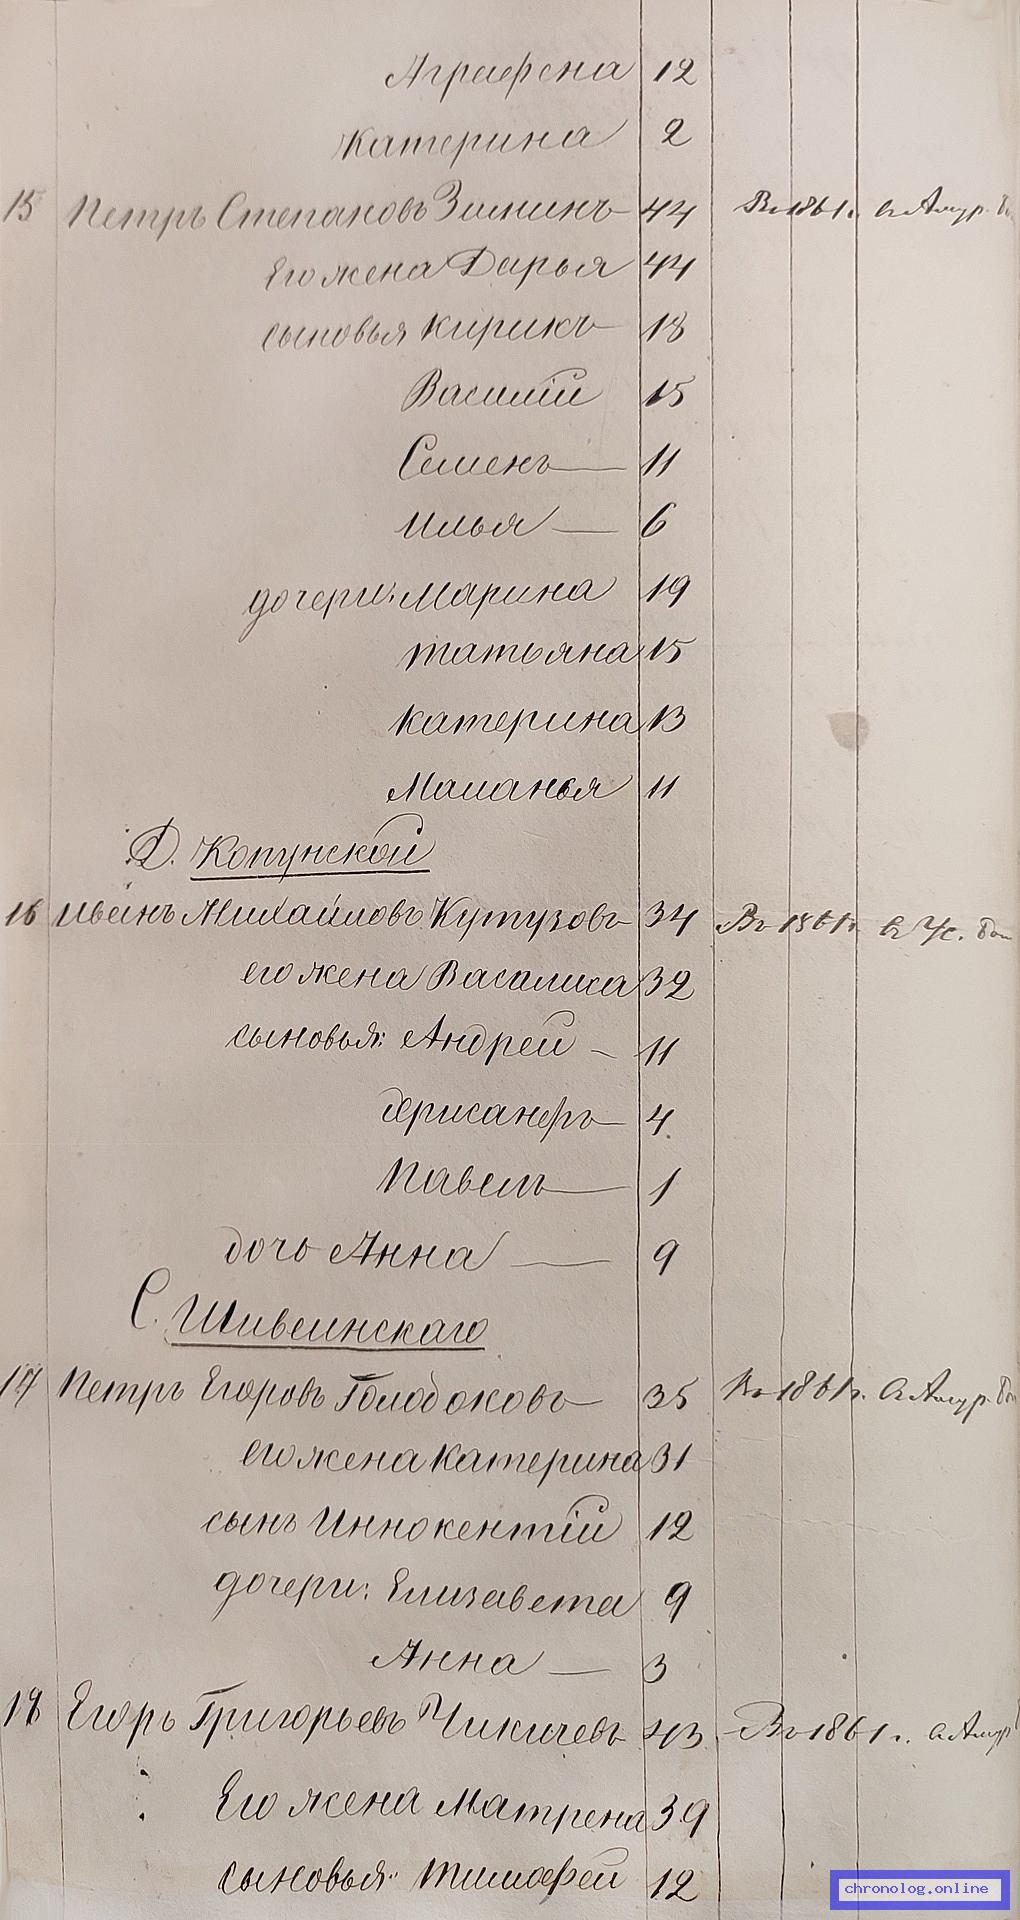 Аграфена 12
Катерина 2
15 Петръ Степановъ Зиминъ 44 Въ 1861 г. въ Амур. бат
Его жена Дарья 44
сыновья Кирикъ 18
Василій 15
Семенъ — 11
Илья — 6
дочери: Марина 19
Татьяна 15
Катерина 13
Маланья 11
Д. Копунской
16 Иванъ Михайловъ Кутузовъ 34 Въ 1861 г. въ бат
его жена Васалиса 32
сыновья: Андрей — 11
4
Павелъ — 1
дочь Анна — 9
С. Шивеинскаго
17 Петръ Егоровъ Голобоковъ 35 Въ 1861 г. въ Амур. бат
его жена Катерина 31
сынъ Иннокентій 12
дочери: Елизавета 9
Анна — 3
18 Егоръ Григорьевъ Чикичевъ 43 Въ 1861 г. въ Амур
Его жена Матрена 39
сыновья: Тимофей 12
chronolog.online